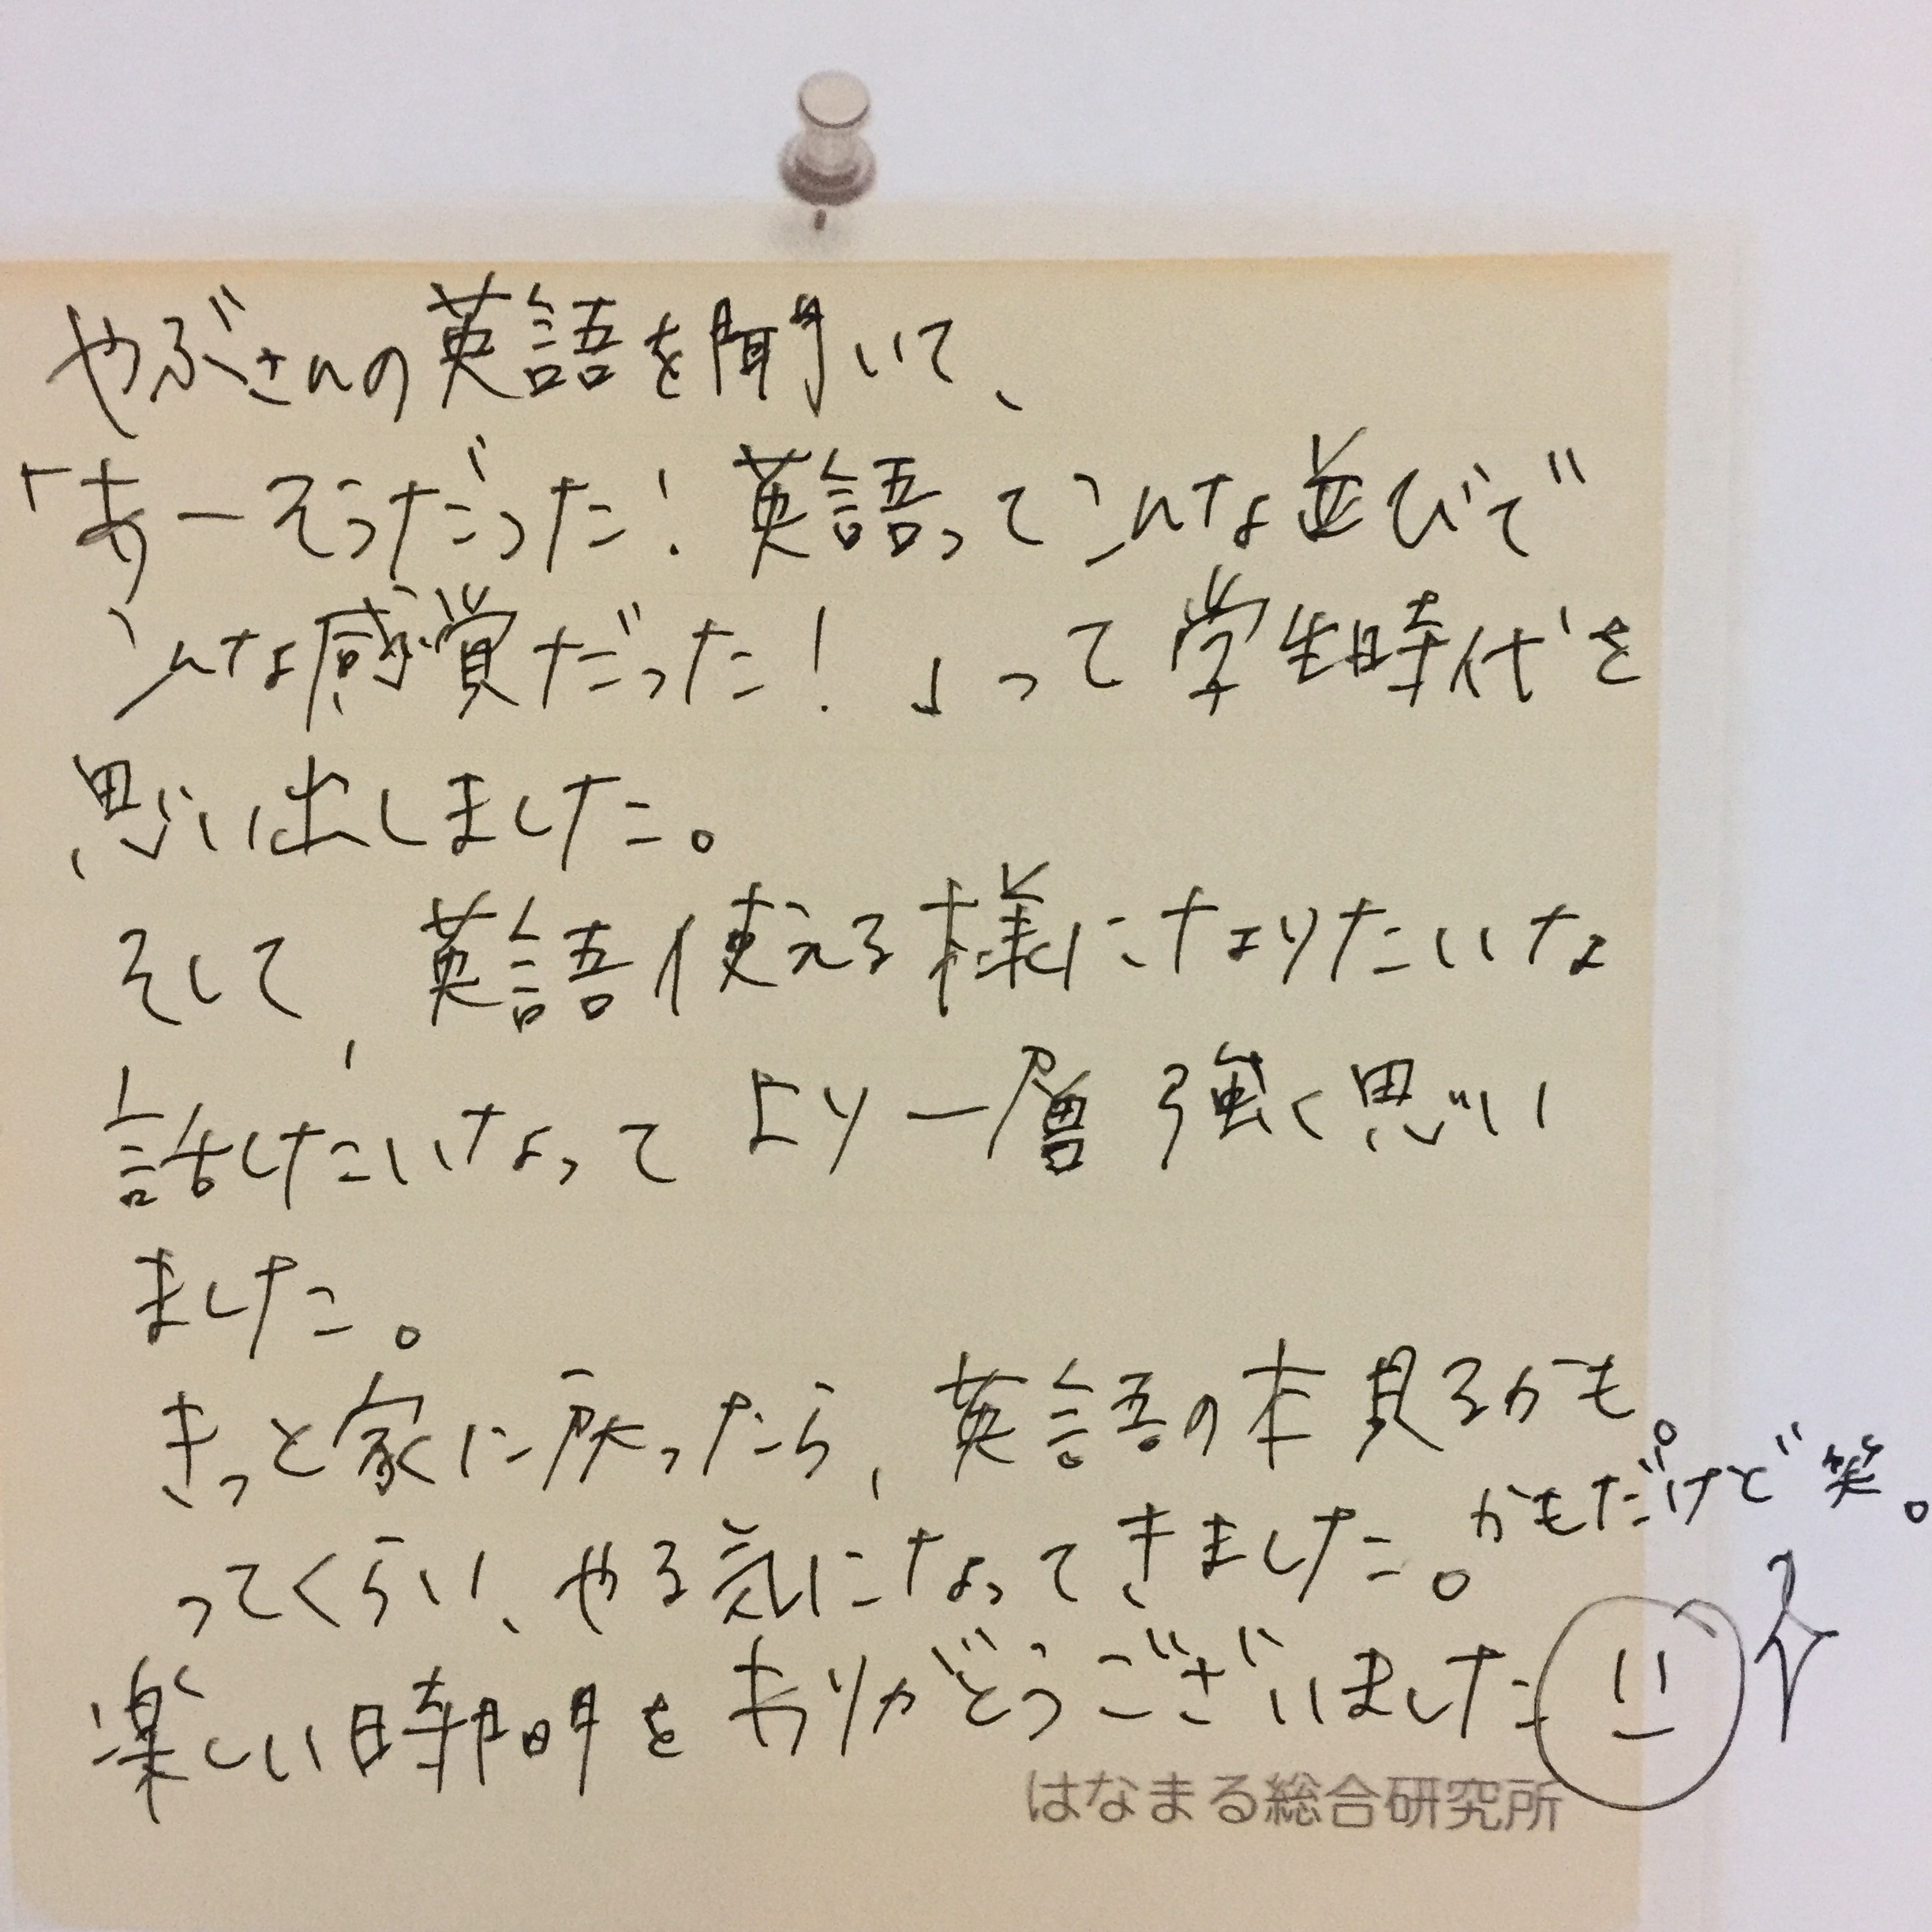 やぶさんの英語を聞いて、
「あーそうだった！英語ってこんな並びで
こんな感覚だった！」って学生時代を
思い出しました。
そして、英語使える様になりたいな
話したいなって より一層 強く思い
ました。
きっと家に戻ったら、英語の本見るかも。
かもだけど笑。
ってくらい、やる気になってきました。
楽しい時間を ありがとうございました
はなまる総合研究所